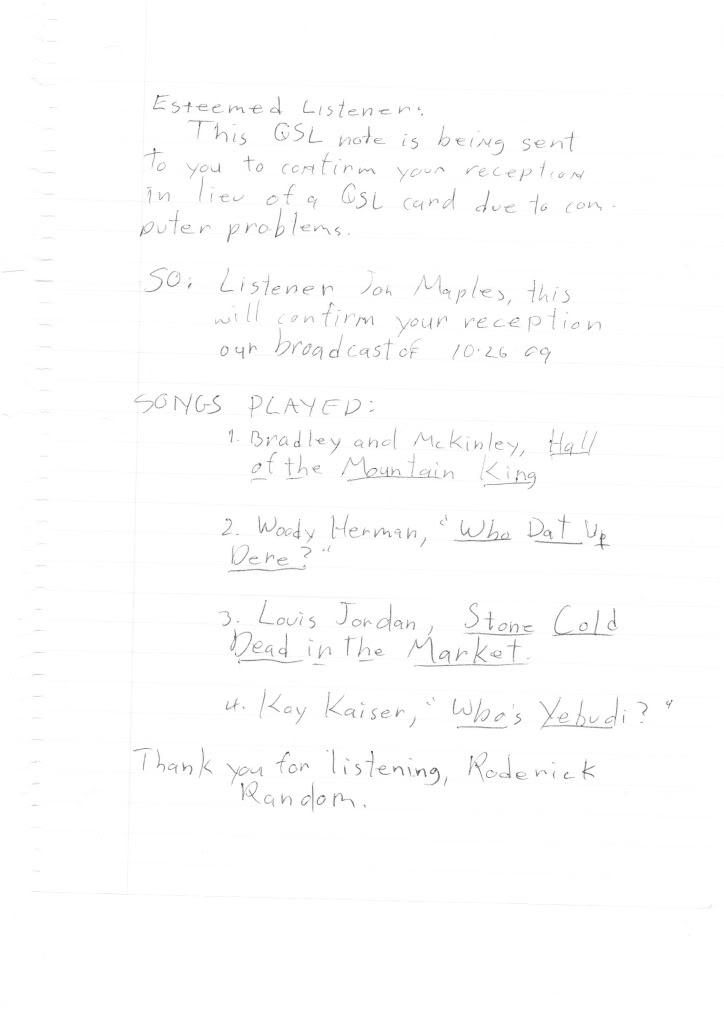 Esteemed Listener:
This QSL note is being sent
to you to confirm your reception
in lieu of a QSL card due to com-
puter problems.
SO: Listener Jon Maples, this
will confirm your reception
our broadcast of 10.26 09
SONGS PLAYED:
1. Bradley and McKinley, Hall
of the Mountain King
2. Woody Herman, "Who Dat Up
Dere?"
3. Louis Jordan, Stone Cold
Dead in The Market.
4. Kay Kaiser, "Who's Yebudi?"
Thank you for listening, Roderick
Random.